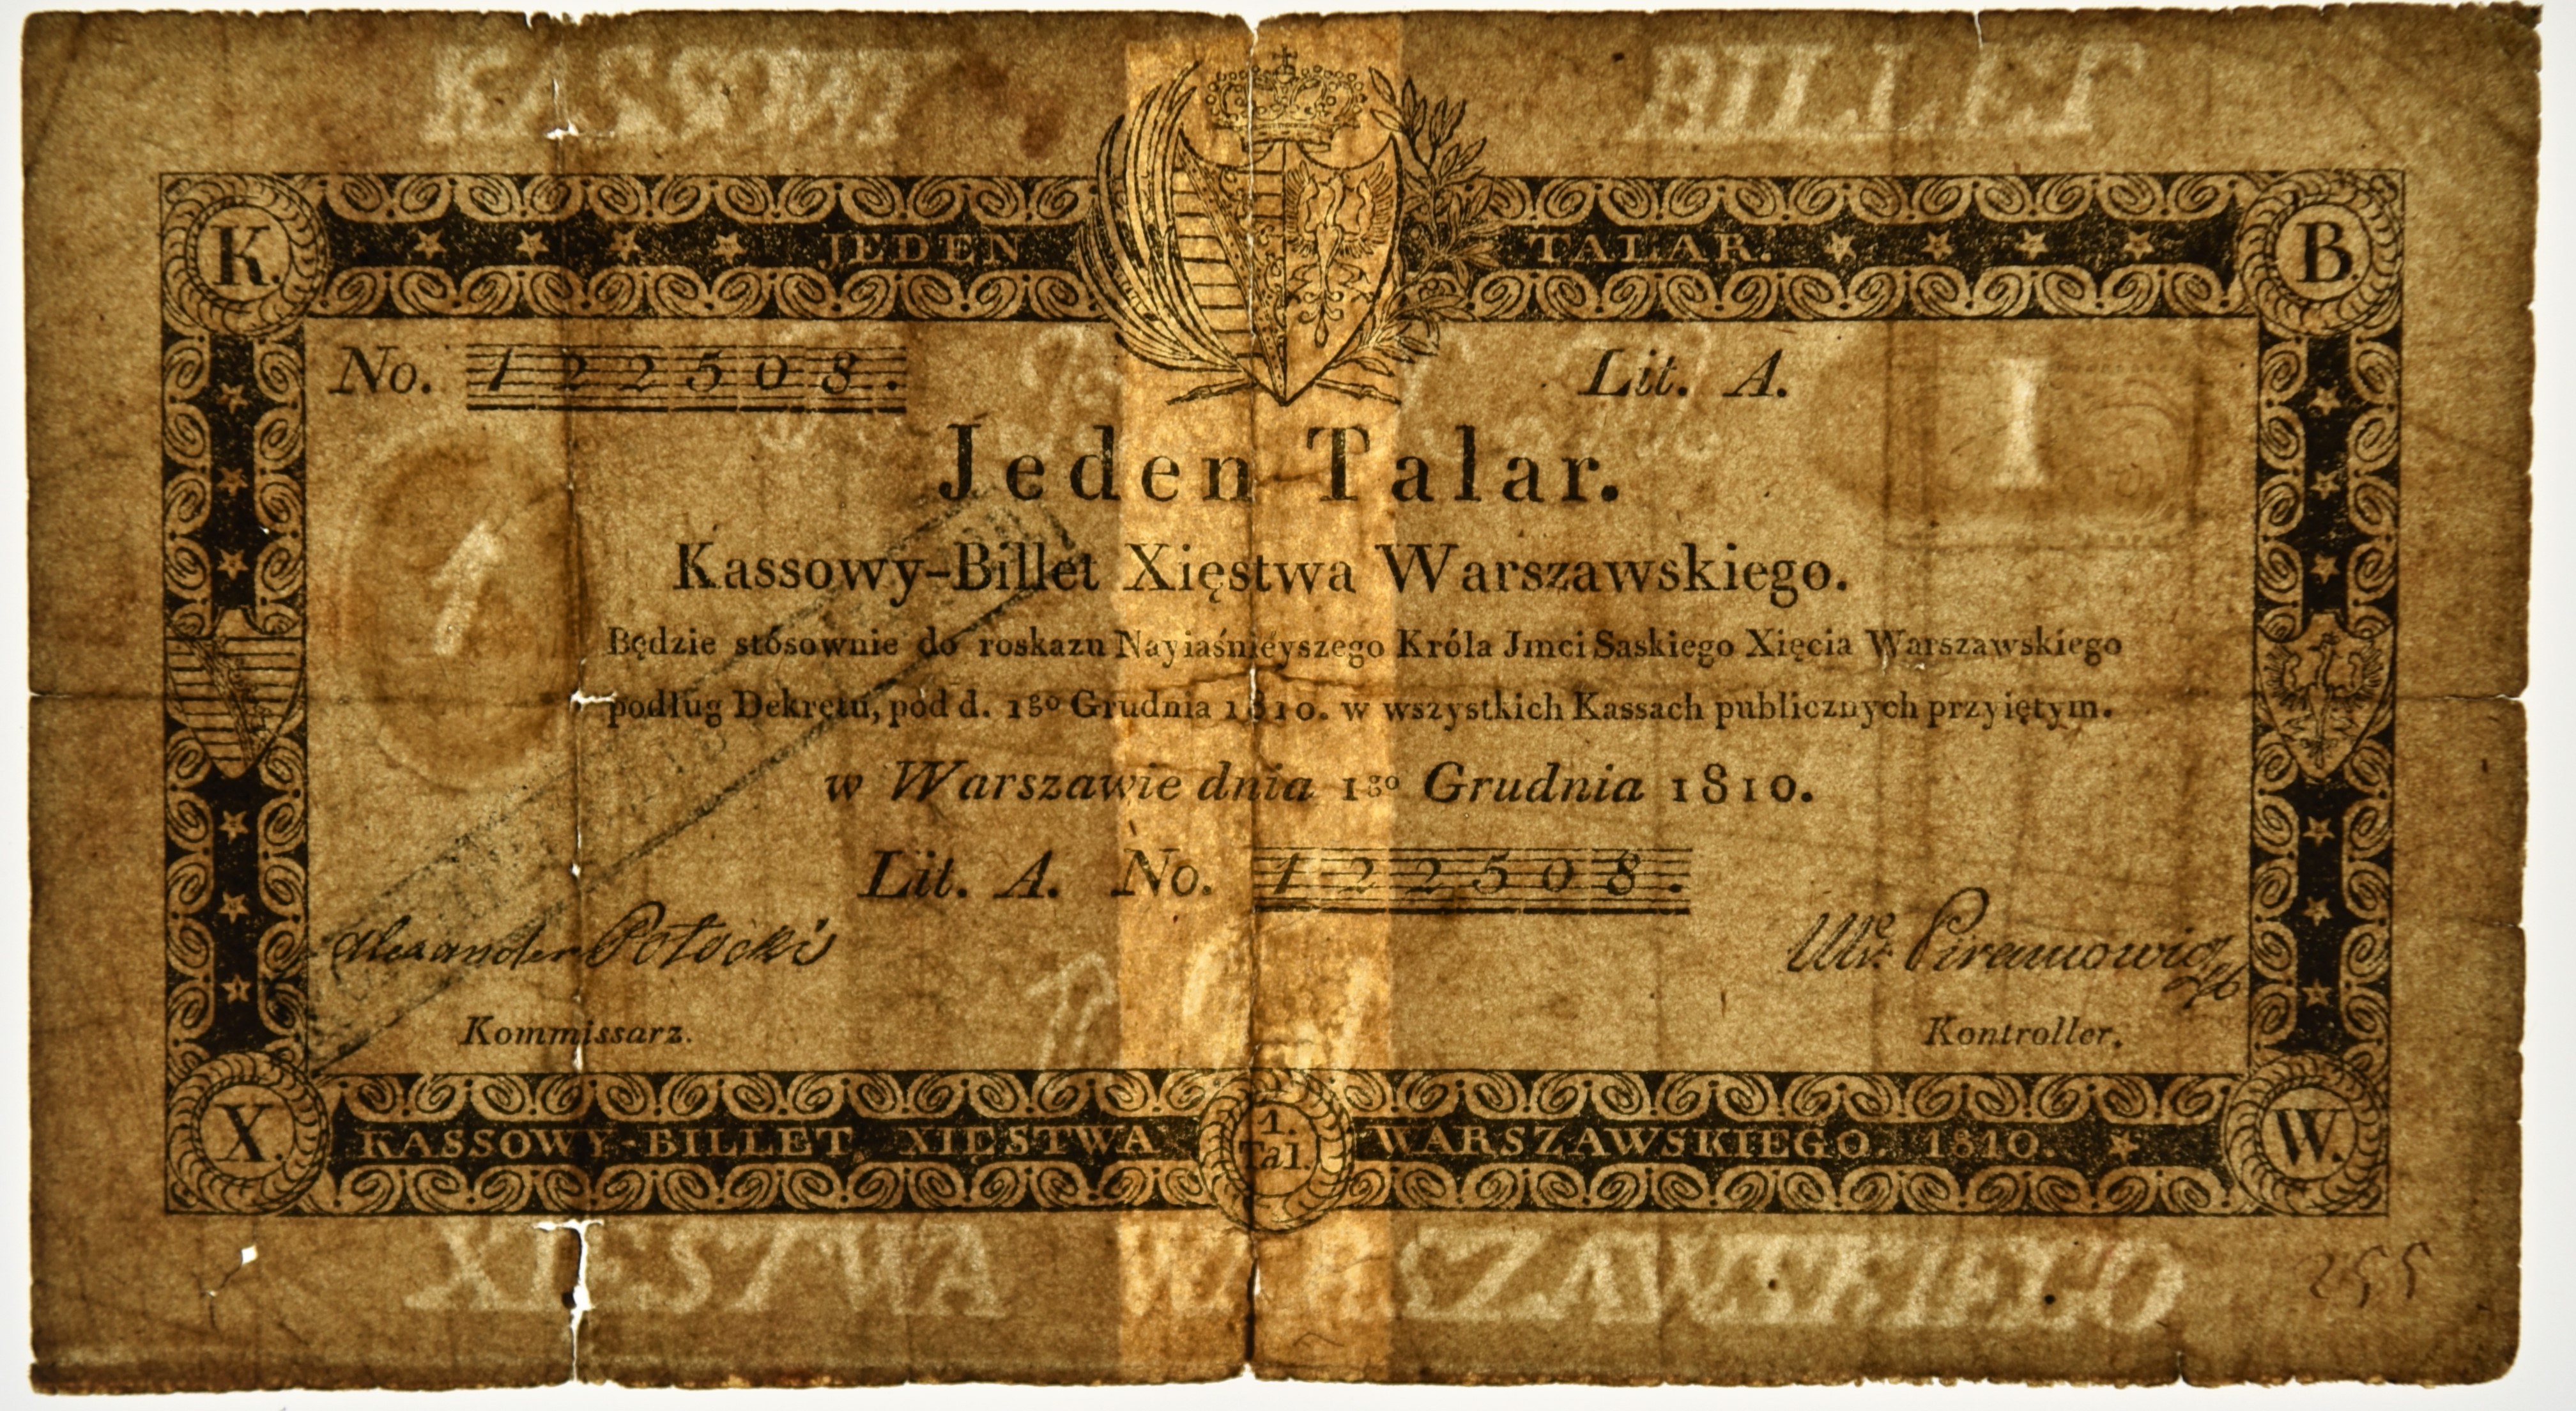 KASSOWY BILLET
K. JEDEN TALAR. B.
No. 122508. Lit. A.
1 1
Jeden Talar.
Kassowy-Billet Xięstwa Warszawskiego.
Będzie stósownie do roskazu Nayiaśnieyszego Króla Jmci Saskiego Xięcia Warszawskiego
podług Dekretu, pod d. 1go Grudnia 1810. w wszystkich Kassach publicznych przyiętym.
w Warszawie dnia 1go Grudnia 1810.
Lit. A. No. 122508.
Alexander Potocki
Kommissarz.
Piramowicz
Kontroller.
X. KASSOWY-BILLET XIĘSTWA 1. Tal. WARSZAWSKIEGO. 1810. W.
XIESTWA WARSZAWSKIEGO
255